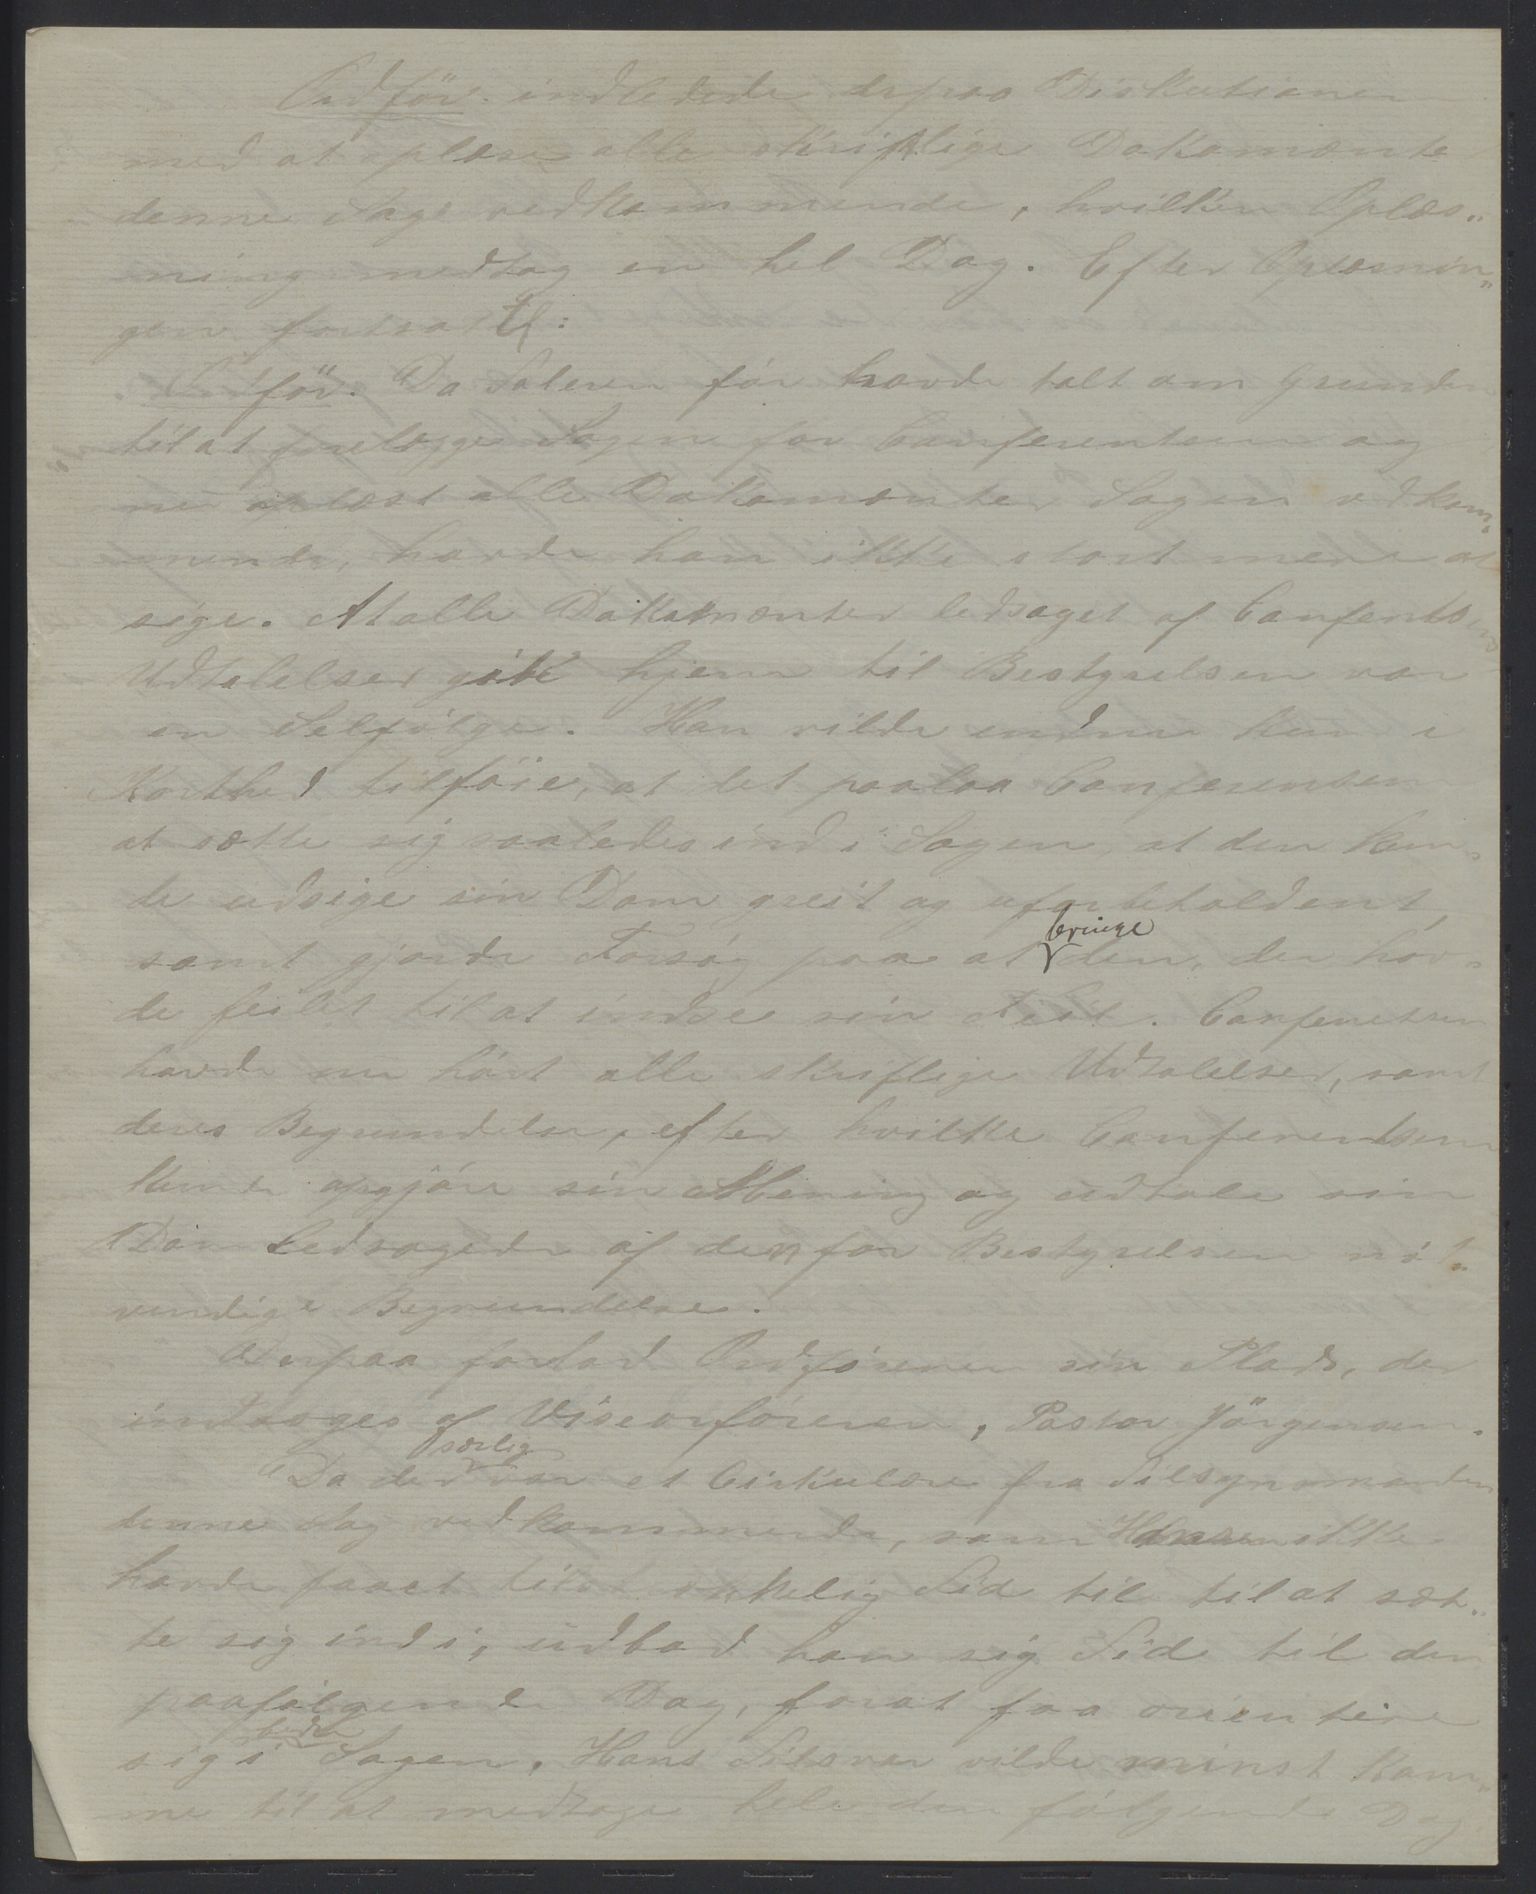 Ordför. indledede derpaa Diskutionen
med at oplæse alle skriftlige Dokomænte
denne Sags vedkommende, hvilken Oplæs„
ning medtog en hel Dag. Efter Oplæsnin„
gen fortsatte:
Ordför. Da Taleren før havde talt om Grunden
til at forelægge Sagen for Conferentsen og
nu oplæst alle Dokomænter Sagen vedkom„
mende, havde han ikke stort mere at
sige. At alle Dokomænter ledsaget af Conferents
Udtalelser gik hjem til Bestyrelsen var
en Selfølge. Han vilde endnu kun i
Korthed tilføie, at det paalaa Conferentsen
at sætte sig saaledes ind i Sagen, at den kun„
de udsige sin Dom greit og uforbeholdent,
samt gjorde Forsøg paa at bringe den, der hav„
de feilet til at indse sin Feil. Conferentsen
havde nu hørt alle skriftlige Udtalelser, samt
deres Begrundelse, efter hvilke Conferentsen
kunde opgjøre sin Mening og udtale sin
Dom ledsagede af den for Bestyrelsen nöt„
vendige Begrundelse.
Derpaa forlod Ordføreren sin Plads, der
indtoges af Viseorføreren, Pastor Jörgensen.
Da der særlig var et Cirkulære fra Tilsynsmanden
denne Sag vedkommende, som Hansen ikke
havde faaet tilstrækkelig Tid til til at sæt„
te sig ind i, udbad han sig Tid til den
paafølgende Dag, forat faa orientere
sig bedre i Sagen. Hans Tilsvar vilde minst kom„
me til at medtage hele den følgende Dag